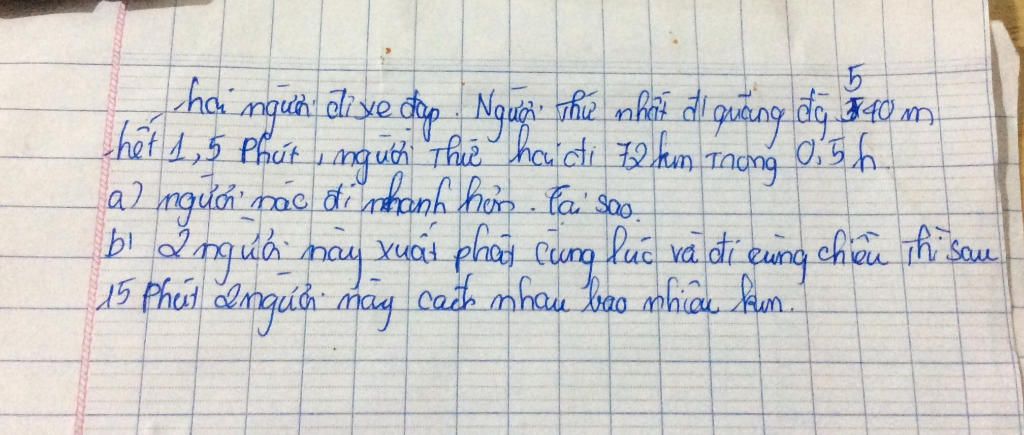 hai người đi xe đạp. Người thứ nhất đi quãng đg 540 m
hết 1,5 phút, người thứ hai đi 72 km trong 0,5 h
a) người nào đi nhanh hơn. Tại sao.
b) 2 người này xuất phát cùng lúc và đi cùng chiều thì sau
15 phút 2 người này cách nhau bao nhiêu km.